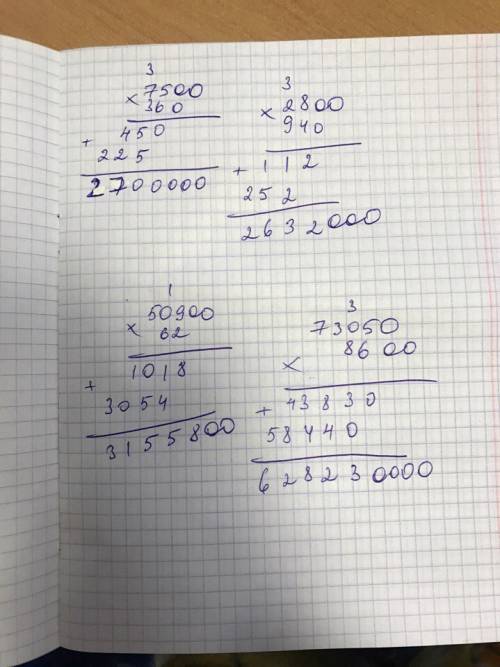 3
× 7500
360
+ 450
225
2700000
3
× 2800
940
+ 112
252
2632000
1
× 50900
62
+ 1018
3054
3155800
3
73050
× 8600
+ 43830
58440
628230000